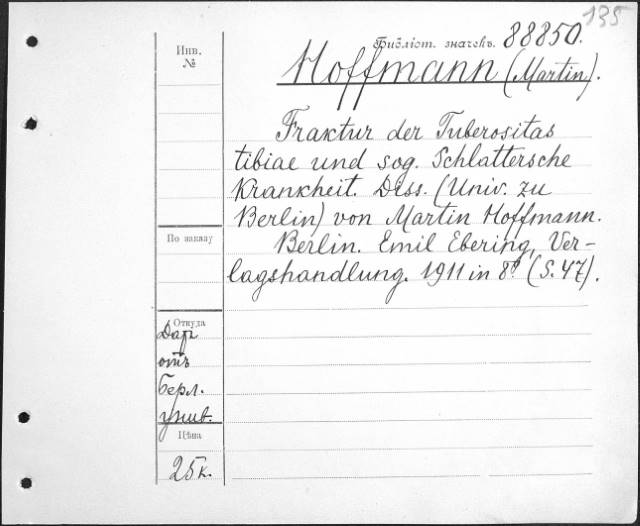 135
Инв.
№
Библіот. значекъ. 88850.
Hoffmann (Martin).
Fraktur der Tuberositas
tibiae und sog. Schlattersche
Krankheit. Diss. (Univ. zu
Berlin) von Martin Hoffmann.
Berlin. Emil Ebering, Ver-
lagshandlung. 1911 in 8º (S. 47).
По заказу
Откуда
Дар
отъ
Берл.
унив.
Цѣна
25 к.